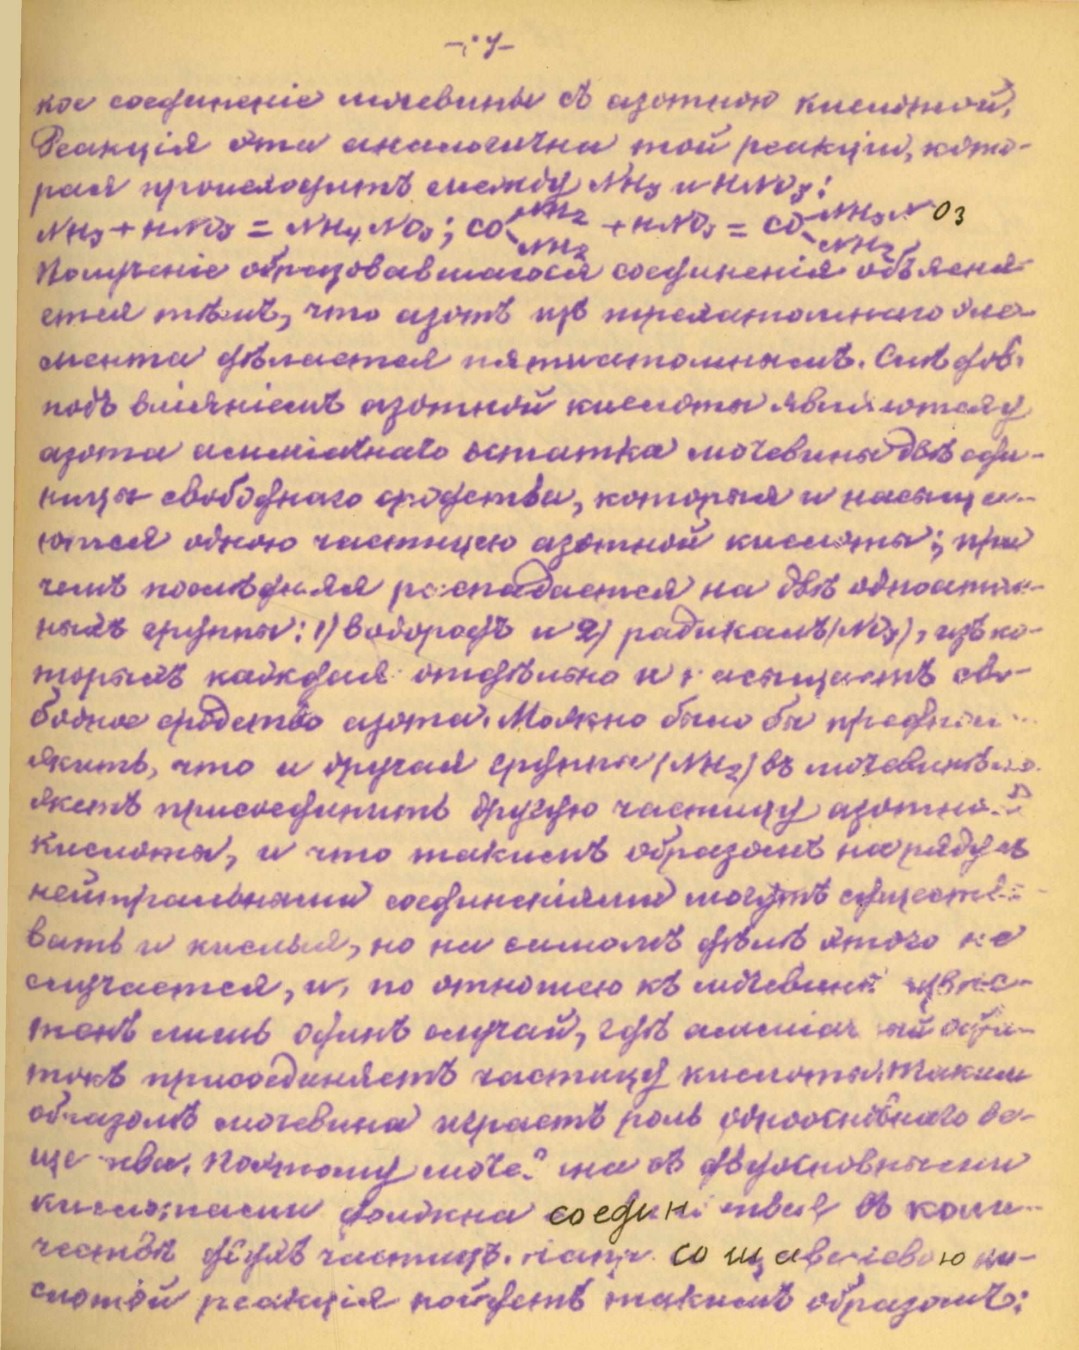 кое соединеніе мочевины съ азотною кислотой.
Реакція эта аналогична той реакціи, кото-
рая происходитъ между NH₃ и HNO₃:
NH₃ + HNO₃ = NH₄NO₃; CO<NH₂ NH₂ + HNO₃ = CO<NH₃NO₃ NH₂
Полученіе образовавшагося соединенія объясня-
ется тѣмъ, что азотъ изъ трехатомнаго эле-
мента дѣлается пятиатомнымъ. Слѣдов.
подъ вліяніемъ азотной кислоты являются у
азота амміачнаго остатка мочевины двѣ еди-
ницы свободнаго сродства, которыя и насыща-
ются одною частицею азотной кислоты; при
чемъ послѣдняя распадается на двѣ одноатом-
ныхъ группы: 1) водородъ и 2) радикалъ (NO₃), изъ ко-
торыхъ каждая отдѣльно и насыщаетъ сво-
бодное сродство азота. Можно было бы предполо-
жить, что и другая группа (NH₂) въ мочевинѣ мо-
жетъ присоединить другую частицу азотной
кислоты, и что такимъ образомъ наряду съ
нейтральными соединеніями могутъ существо-
вать и кислыя, но на самомъ дѣлѣ этого не
случается, и, по отношею къ мочевинѣ извѣс-
тенъ лишь одинъ случай, гдѣ амміачный оста-
токъ присоединяетъ частицу кислоты. Таким
образомъ мочевина играетъ роль одноосновнаго ве-
щества. Поэтому мочевина съ двуосновными
кислотами должна соединиться въ коли-
чествѣ двухъ частицъ. Напр. со щавелевою ки-
слотой реакція пойдетъ такимъ образомъ: